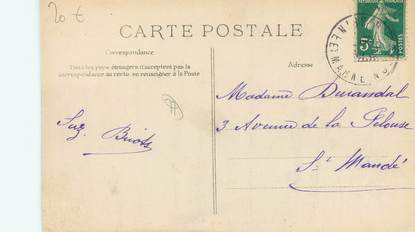 20 €
CARTE POSTALE
Correspondance
Tous les pays étrangers n'acceptent pas la
correspondance au recto, se renseigner à la Poste
Adresse
5c
POSTES
Madame Durandal
3 Avenue de la Pelouse
St Mandé
Suz. Briot